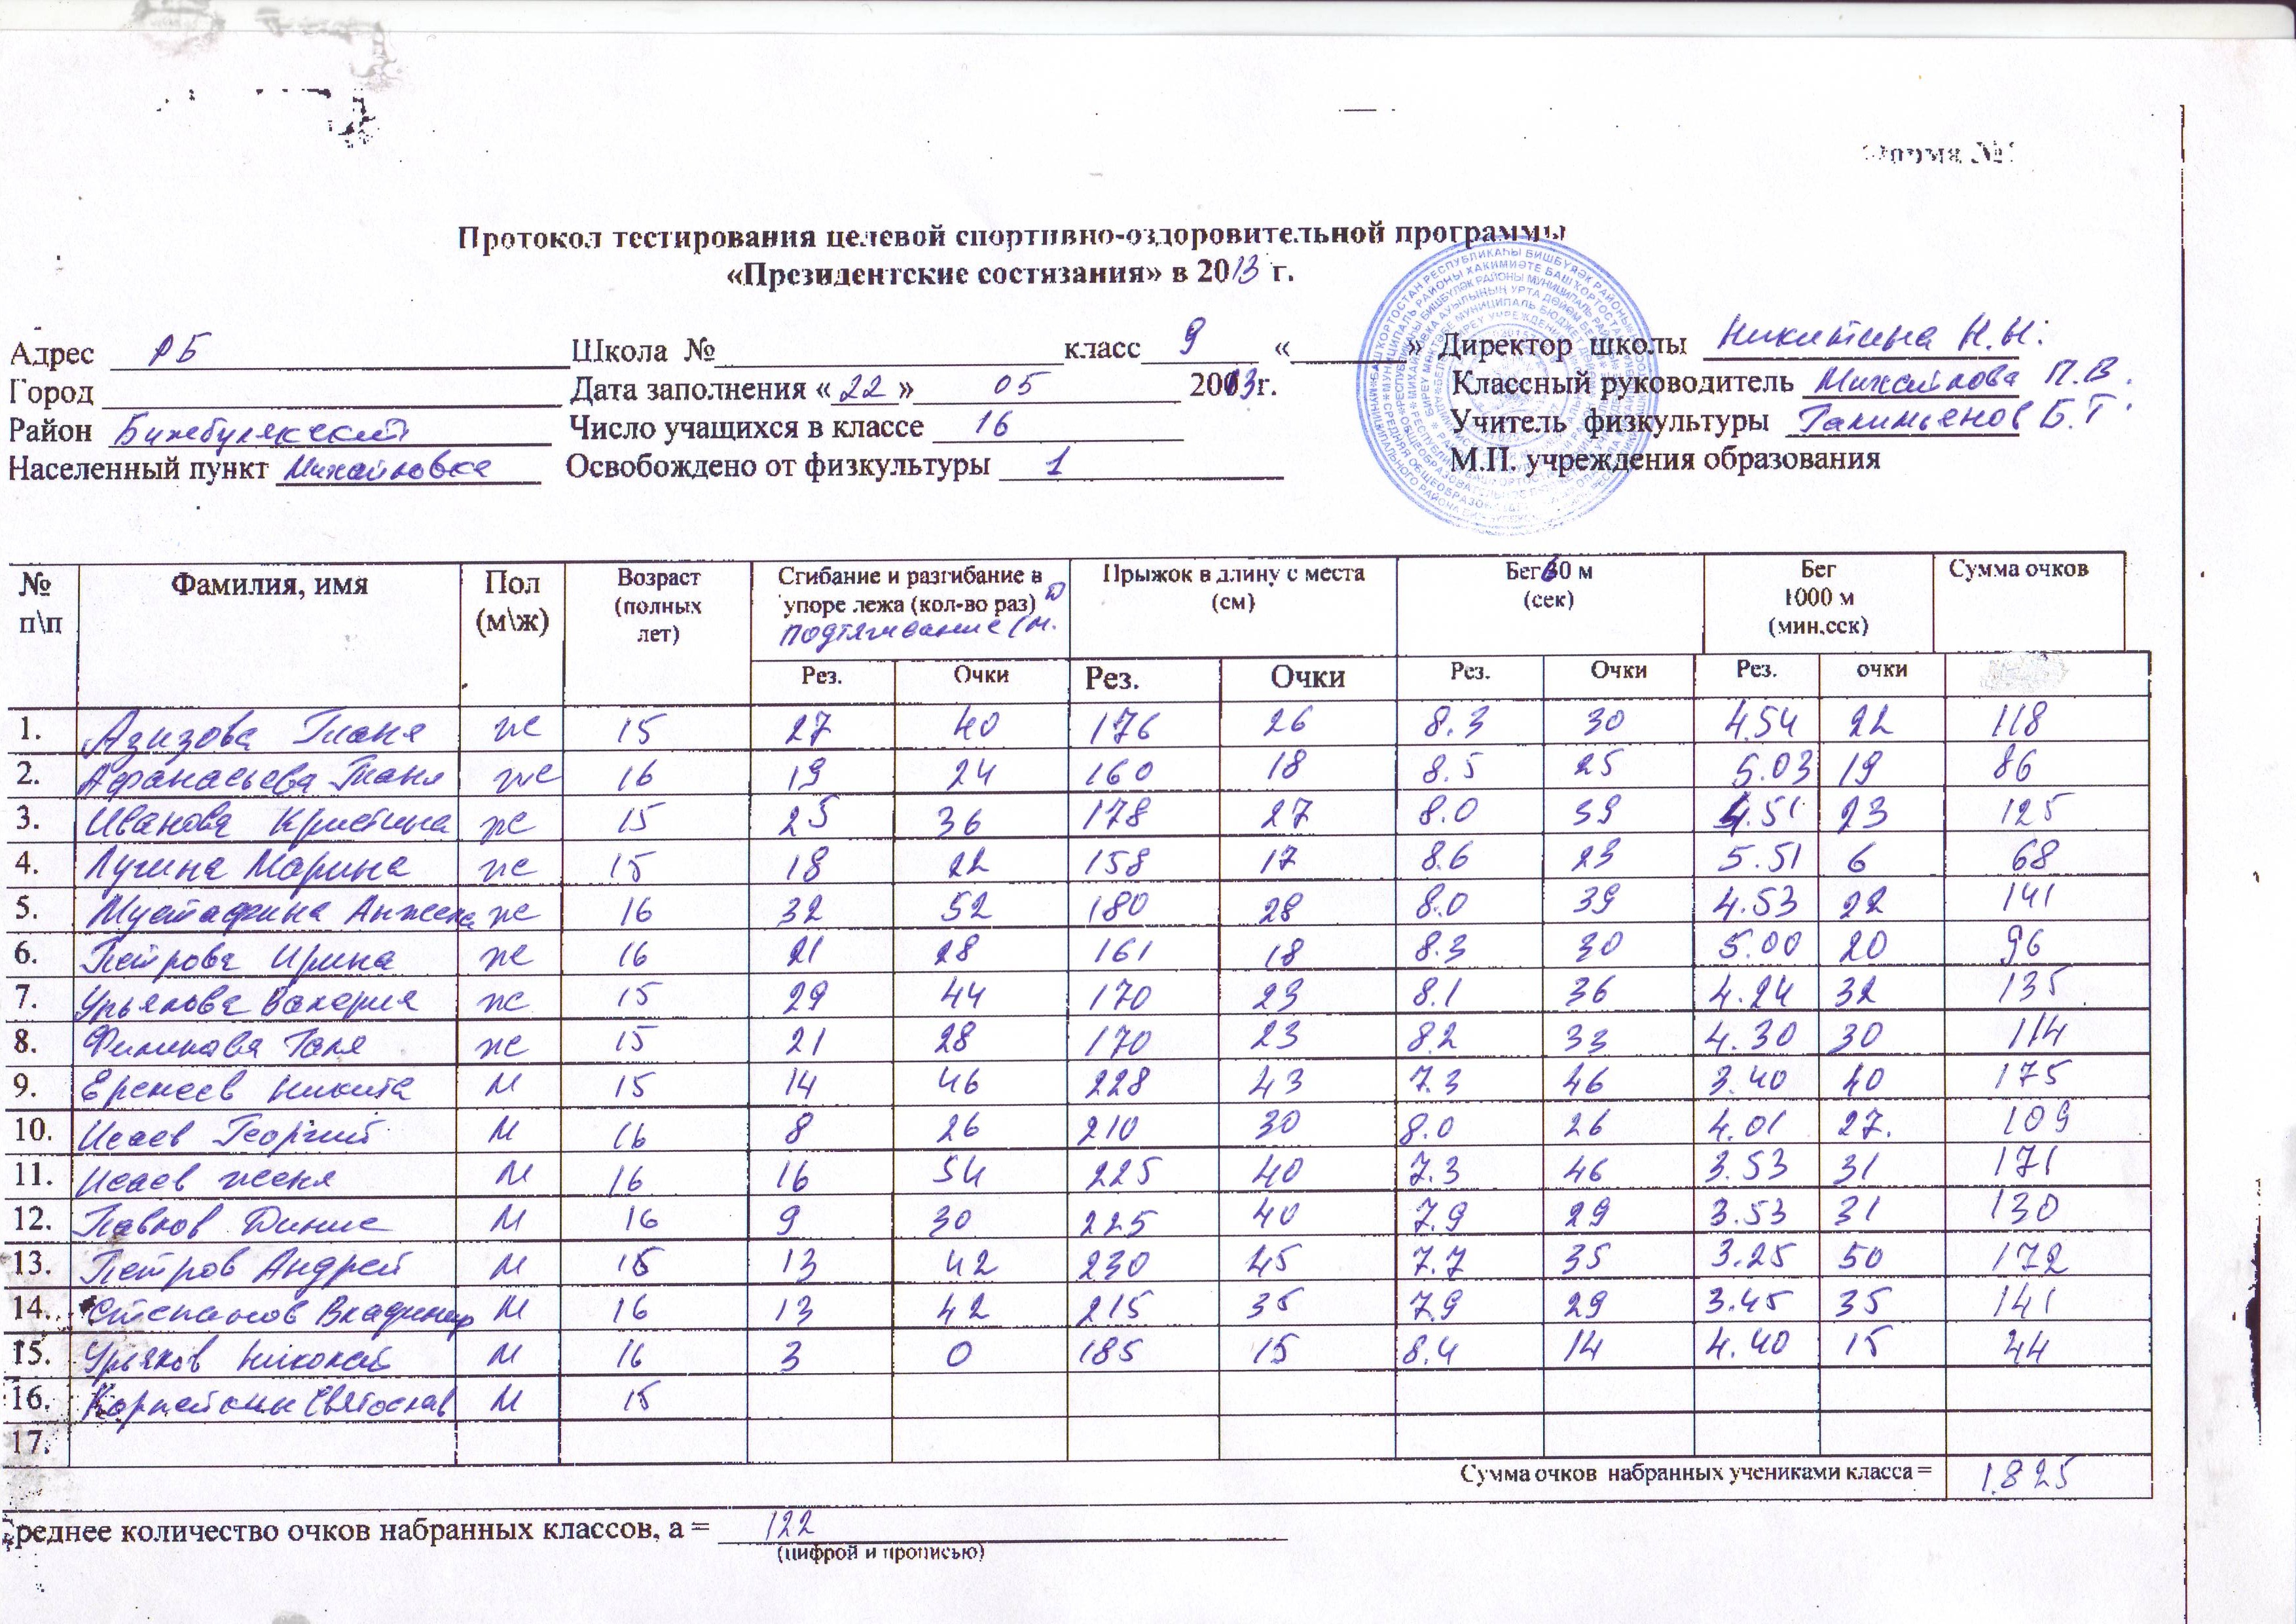 Форма №
Протокол тестирования целевой спортивно-оздоровительной программы
«Президентские состязания» в 2013 г.
Адрес РБ Школа № класс 9 « » Директор школы Никитина Н.Н.
Город Дата заполнения «22» 05 2013г. Классный руководитель Михайлова П.В.
Район Бижбулякский Число учащихся в классе 16 Учитель физкультуры Галимьянов Б.Г.
Населенный пункт Михайловка Освобождено от физкультуры 1 М.П. учреждения образования
№ п\п Фамилия, имя Пол (м\ж) Возраст (полных лет) Сгибание и разгибание в упоре лежа (кол-во раз) Д подтягивание (м. Прыжок в длину с места (см) Бег 60 м (сек) Бег 1000 м (мин,сек) Сумма очков
Рез. Очки Рез. Очки Рез. Очки Рез. очки
1. Азизова Таня ж 15 27 40 176 26 8.3 30 4.54 22 118
2. Афанасьева Таня ж 16 19 24 160 18 8.5 25 5.03 19 86
3. Иванова Кристина ж 15 25 36 178 27 8.0 39 4.51 23 125
4. Лугина Марина ж 15 18 22 158 17 8.6 23 5.51 6 68
5. Мустафина Анжела ж 16 32 52 180 28 8.0 39 4.53 22 141
6. Петрова Ирина ж 16 21 28 161 18 8.3 30 5.00 20 96
7. Урьякова Валерия ж 15 29 44 170 23 8.1 36 4.24 32 135
8. Филикова Галя ж 15 21 28 170 23 8.2 33 4.30 30 114
9. Еремеев Никита М 15 14 46 228 43 7.3 46 3.40 40 175
10. Исаев Георгий М 16 8 26 210 30 8.0 26 4.01 27. 109
11. Исаев Женя М 16 16 54 225 40 7.3 46 3.53 31 171
12. Павлов Динис М 16 9 30 225 40 7.9 29 3.53 31 130
13. Петров Андрей М 15 13 42 230 45 7.7 35 3.25 50 172
14. Степанов Владимир М 16 13 42 215 35 7.9 29 3.45 35 141
15. Урьяков Николай М 16 3 0 185 15 8.4 14 4.40 15 44
16. Святослав М 15
17.
Сумма очков набранных учениками класса = 1825
Среднее количество очков набранных классов, а = 122
(цифрой и прописью)